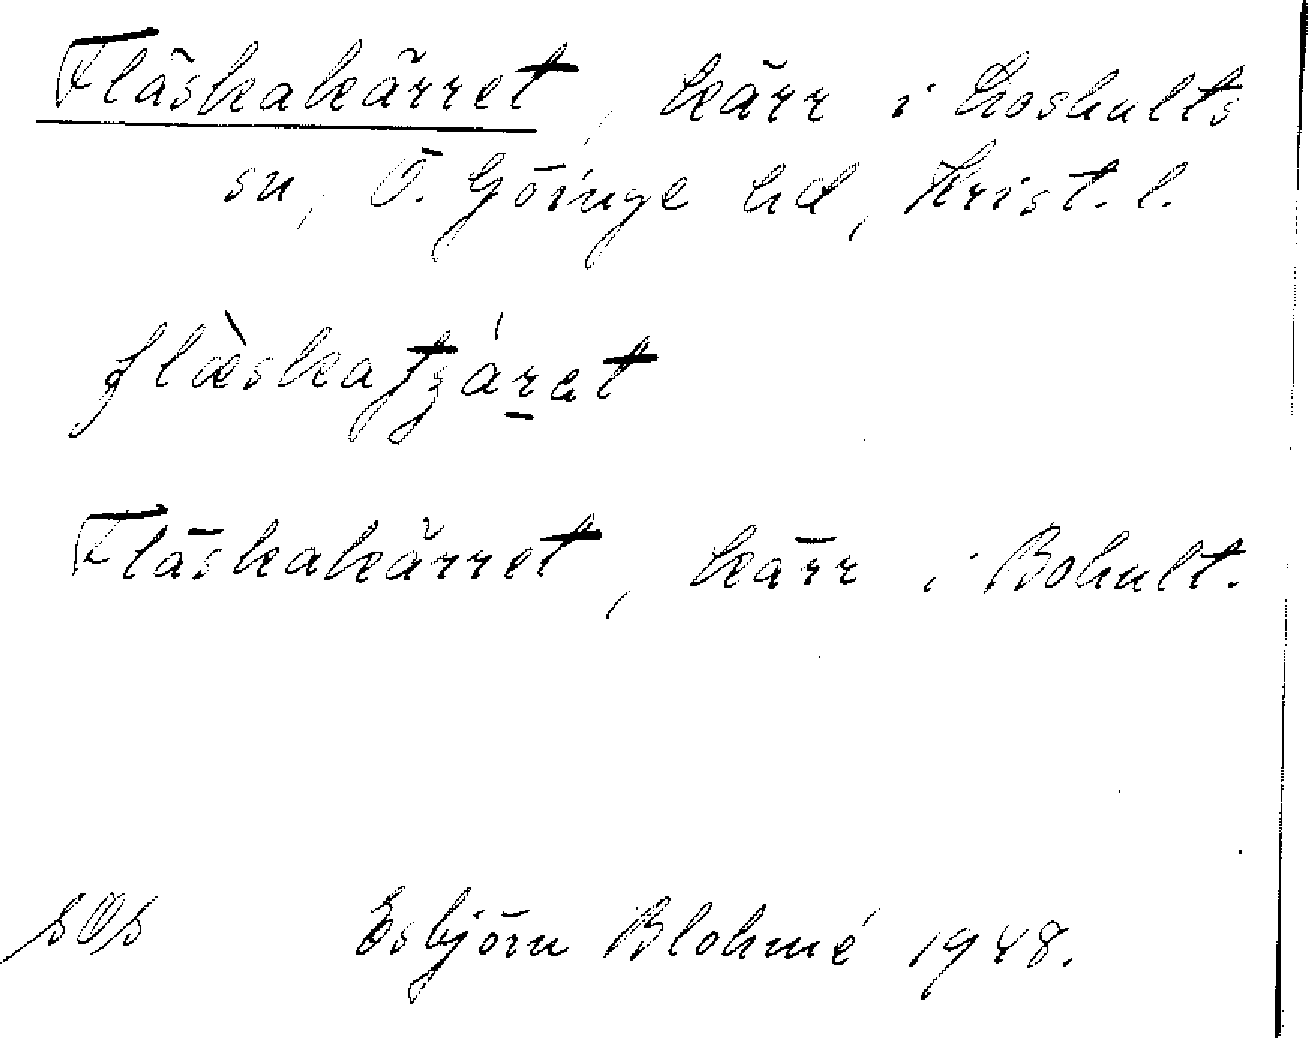 Fläskakärret, kärr i Loshults
sn, Ö. Göinge hd, Krist. l.
flæ̀skatʒáret
Fläskakärret, kärr i Bohult.
Esbjörn Blohmé 1948.